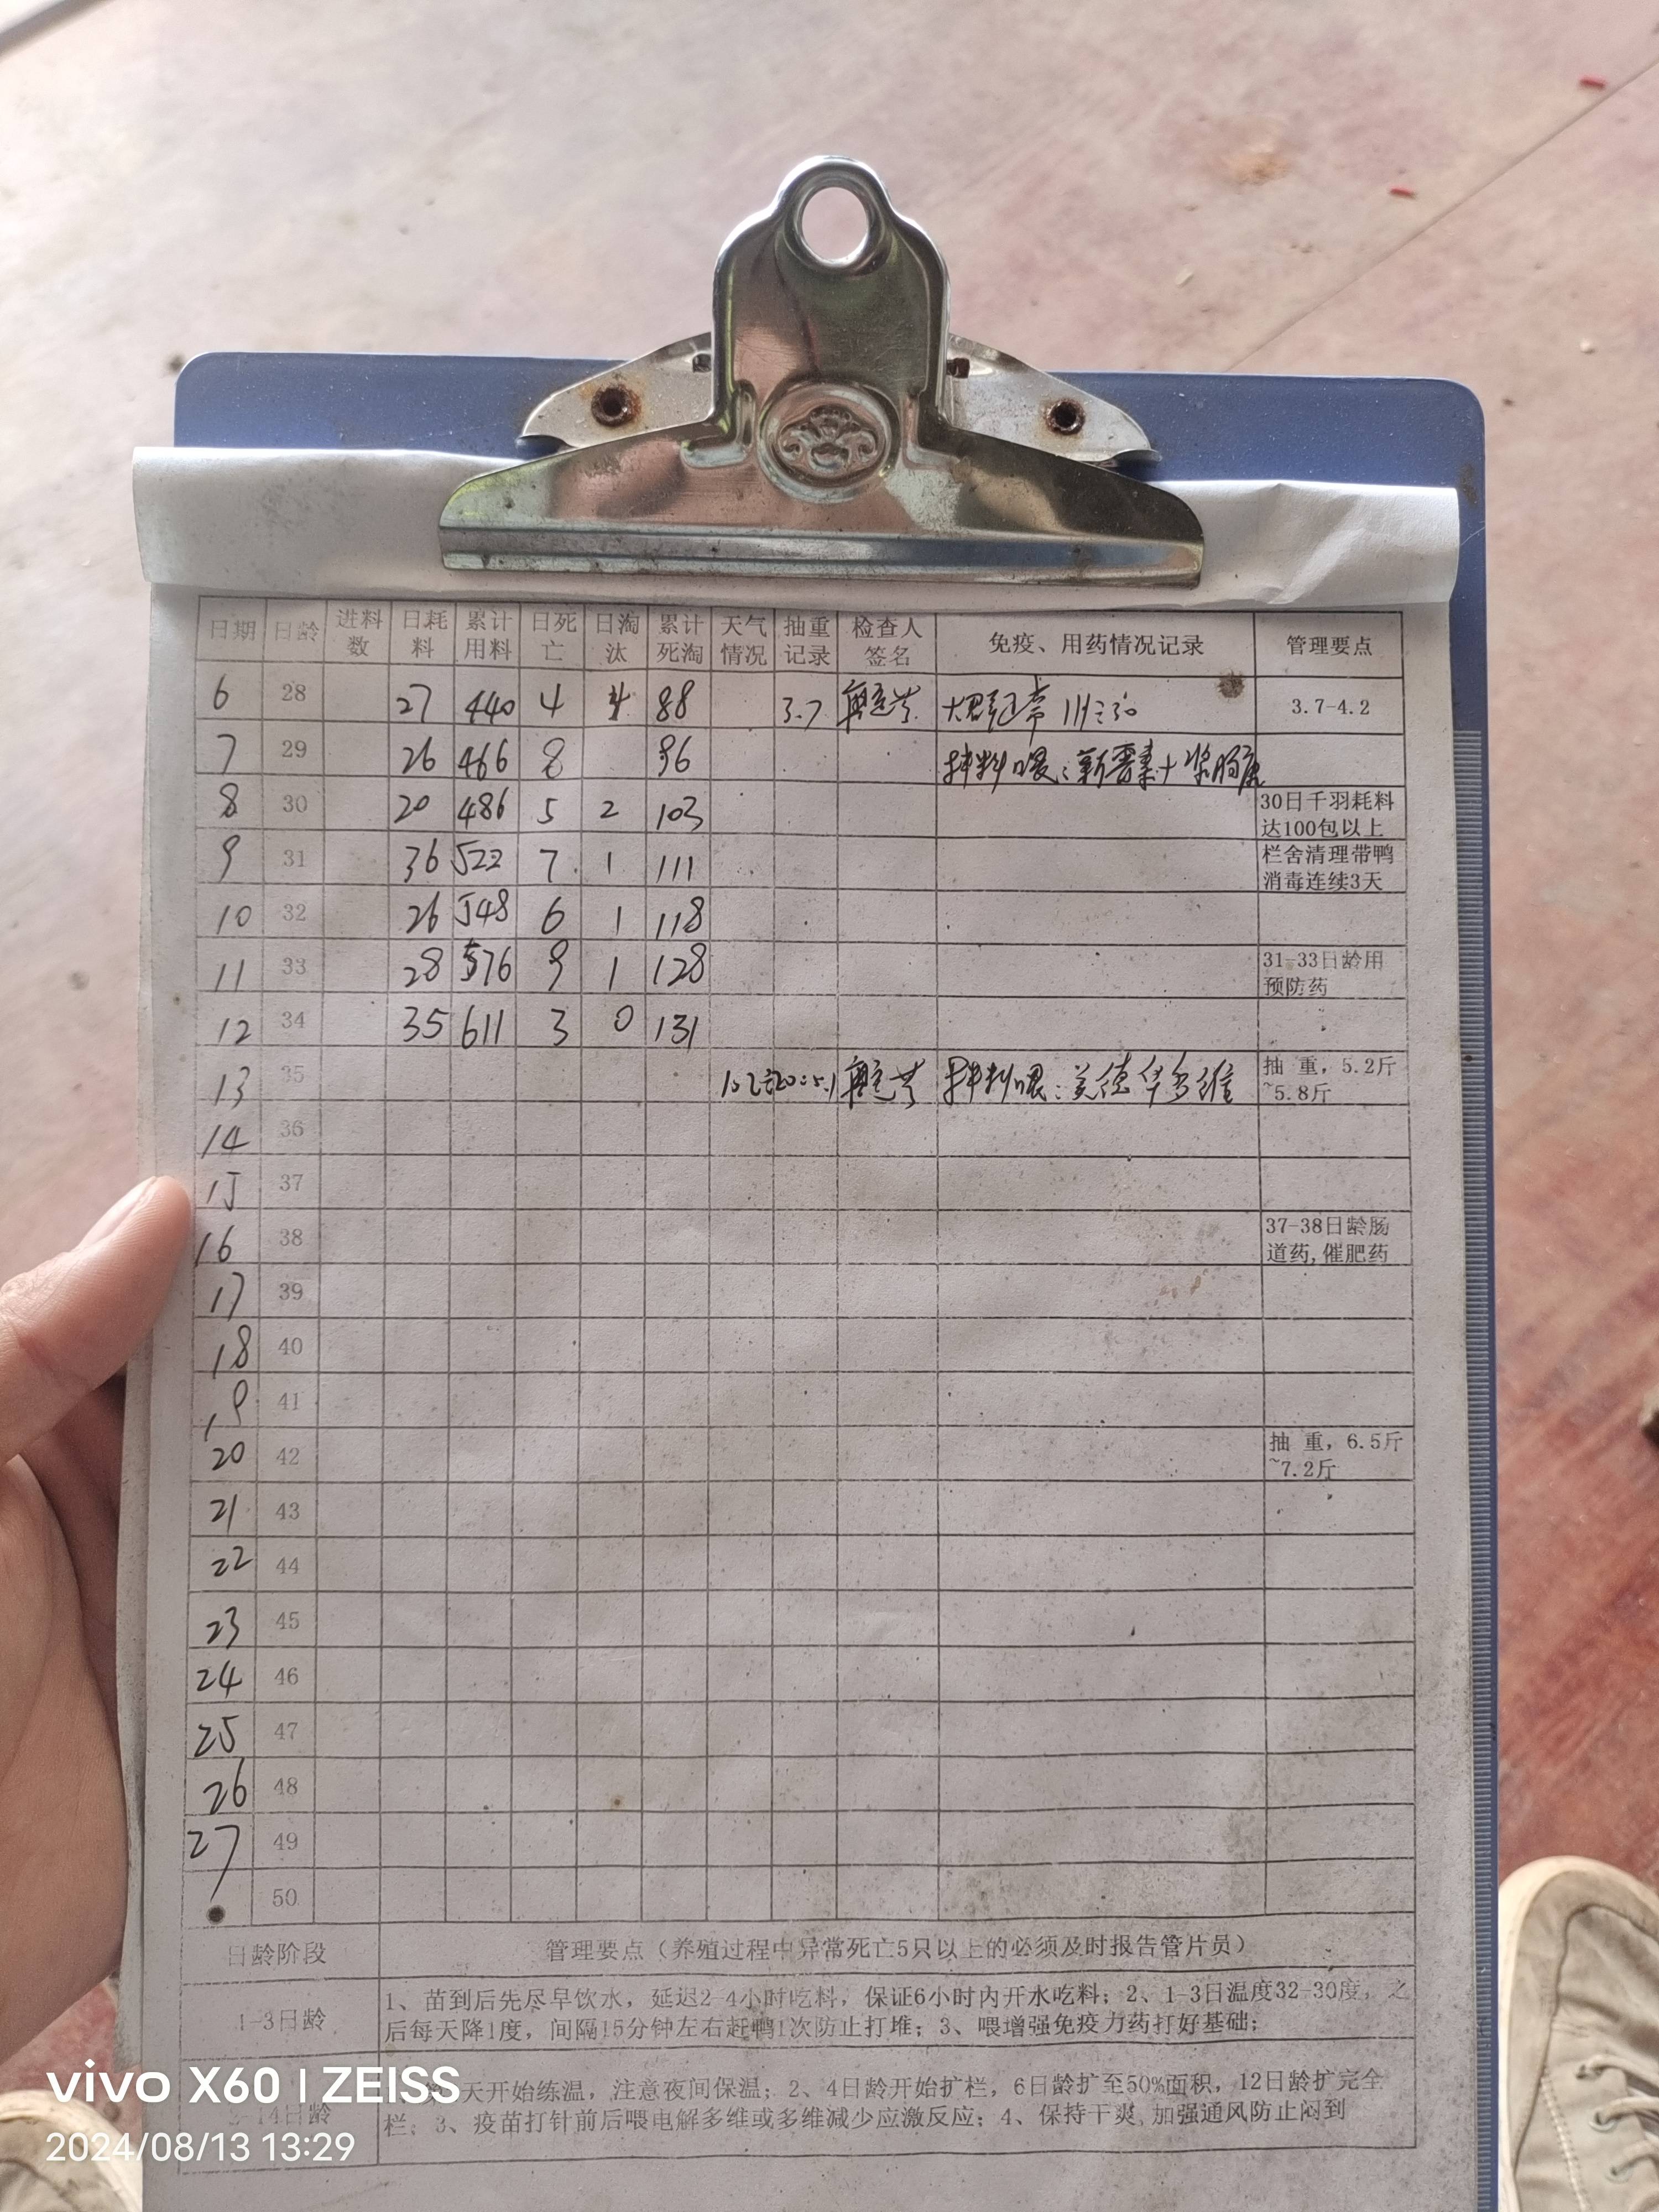 日期 日龄 进料数 日耗料 累计用料 日死亡 日淘汰 累计死淘 天气情况 抽重记录 检查人签名 免疫、用药情况记录 管理要点
6 28 27 440 4 4 88 3.7 大群正常 3.7-4.2
7 29 26 466 8 96 拌料喂：新霉素+浆肠康
8 30 20 486 5 2 103 30日千羽耗料达100包以上
9 31 36 522 7 1 111 栏舍清理带鸭消毒连续3天
10 32 26 548 6 1 118
11 33 28 576 9 1 128 31-33日龄用预防药
12 34 35 611 3 0 131
13 35 拌料喂：美德华多维 抽 重，5.2斤~5.8斤
14 36
15 37
16 38 37-38日龄肠道药,催肥药
17 39
18 40
19 41
20 42 抽 重，6.5斤~7.2斤
21 43
22 44
23 45
24 46
25 47
26 48
27 49
50
日龄阶段 管理要点（养殖过程中异常死亡5只以上的必须及时报告管片员）
1-3日龄 1、苗到后先尽早饮水，延迟2-4小时吃料，保证6小时内开水吃料；2、1-3日温度32-30度，之
后每天降1度，间隔15分钟左右赶鸭1次防止打堆；3、喂增强免疫力药打好基础；
天开始练温，注意夜间保温；2、4日龄开始扩栏，6日龄扩至50%面积，12日龄扩完全
-14日龄 栏；3、疫苗打针前后喂电解多维或多维减少应激反应；4、保持干爽,加强通风防止闷到
vivo X60 | ZEISS
2024/08/13 13:29